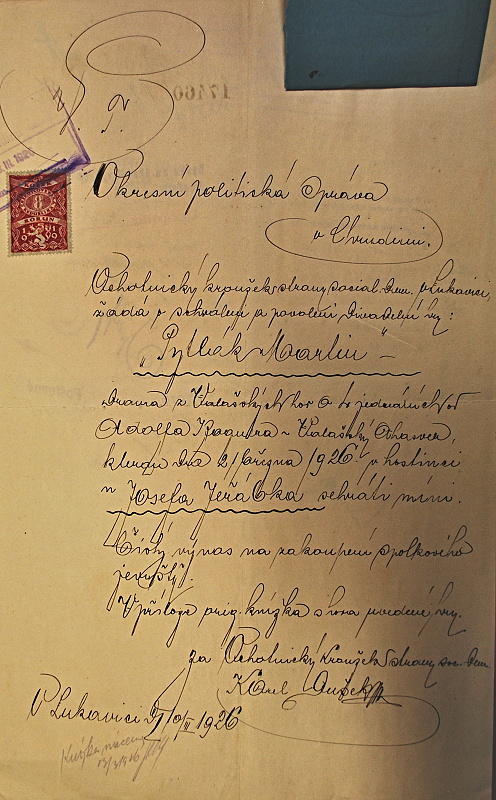 17160
P. T.
III. 1926
8
KORUN
1919
Okresní politická správa
v Chrudimi.
Ochotnický kroužek strany social. dem. v Lukavici,
žádá o schválení a povolení divadelní hry:
"Pytlák Martin" –
drama z Valašských hor o jednáních od
Adolfa Valašský Ahasver,
kterou dne 21 března 1926 v hostinci
u Josefa Jeřábka sehráti míní.
Čistý výnos na zakoupení spolkového
jeviště.
V příloze orig. knížka shora uvedené hry.
za Ochotnický kroužek strany soc. dem
Karel
V Lukavici 10/III 1926
Knížka vrácena
13/3 1926